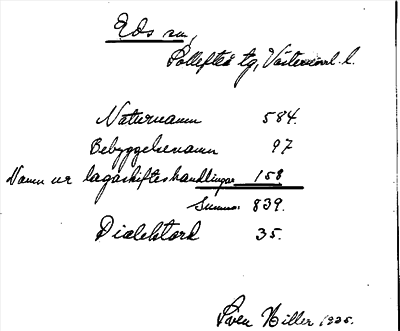 Eds sn,
Sollefteå tg, Västernorrl. l.
Naturnamn 584.
Bebyggelsenamn 97
Namn ur lagaskifteshandlingar 158
Summa: 839.
Dialektord 35.
Sven Hiller 1935.